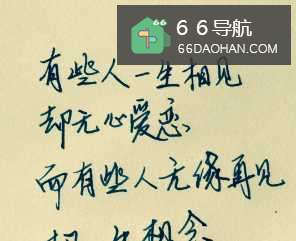 66导航
66DAOHAN.COM
有些人一生相见
却无心爱恋
而有些人无缘再见
相念